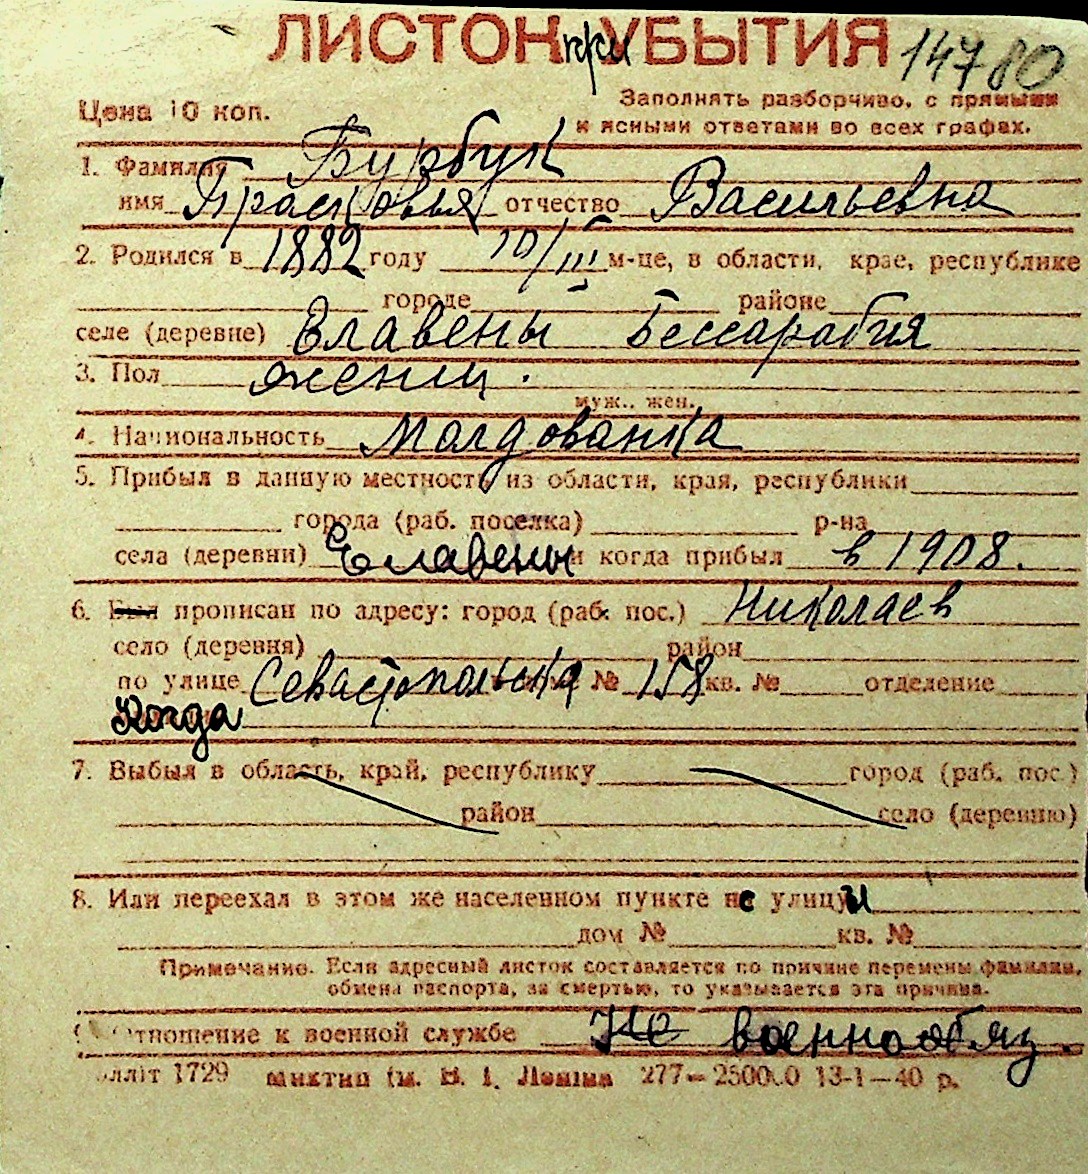 ЛИСТОК при УБЫТИЯ 14780
Цена 10 коп.
Заполнять разборчиво, с прямыми
и ясными ответами во всех графах.
1. Фамилия Бурбук
имя Прасковья отчество Васильевна
2. Родился в 1882 году 10/III м-це, в области, крае, республике
городе районе
селе (деревне) Елавены Бессарабия
3. Пол женщ.
муж., жен.
4. Национальность молдованка
5. Прибыл в данную местность из области, края, республики
города (раб. поселка) р-на
села (деревни) Елавены и когда прибыл в 1908.
6. Был прописан по адресу: город (раб. пос.) Николаев
село (деревня) район
по улице Севастопольска № 158 кв. № отделение
Когда
7. Выбыл в область, край, республику город (раб. пос.)
район село (деревню)
8. Или переехал в этом же населенном пункте нс улицуы
дом № кв. №
Примечание. Если адресный листок составляется по причине перемены фамилии,
обмена паспорта, за смертью, то указывается эта причина.
Отношение к военной службе Не военнообяз.
1729 277— 13-1—40 р.